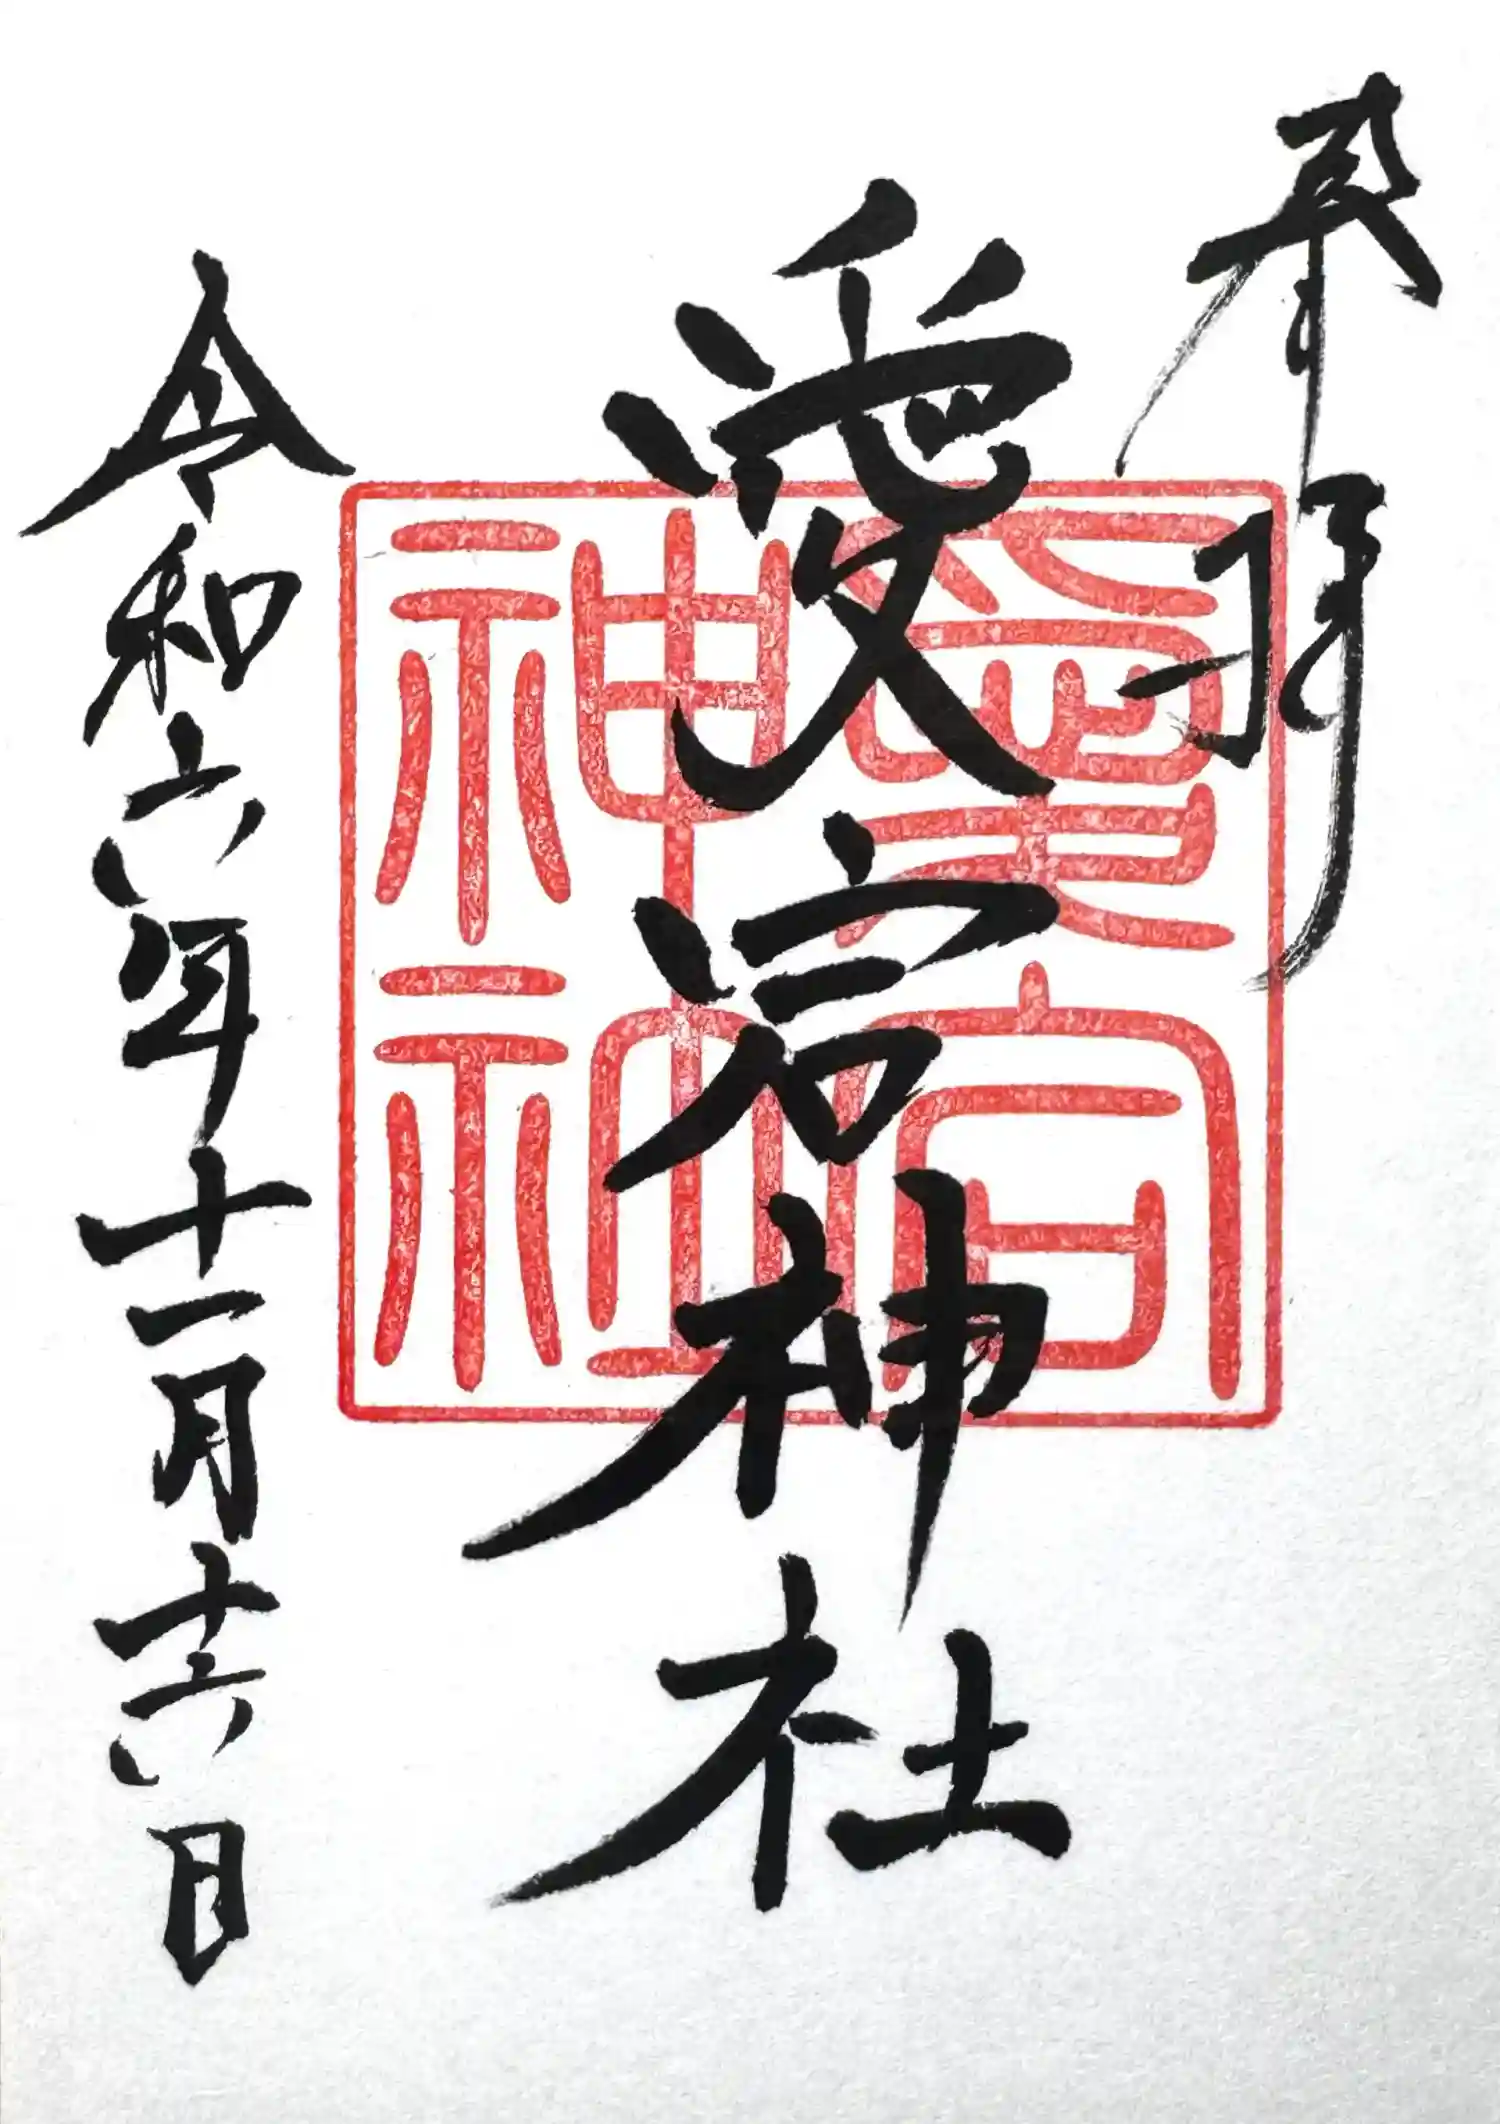 奉拝
愛宕神社
愛宕神社
令和六年十一月十六日